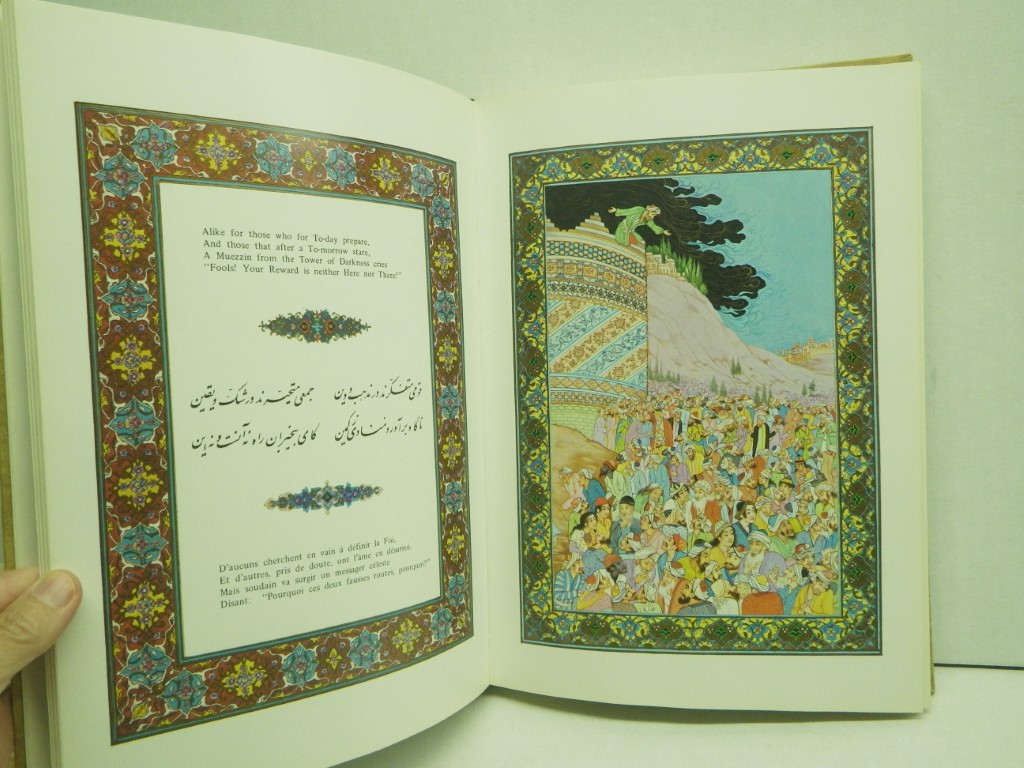 Alike for those who for To-day prepare,
And those that after a To-morrow stare,
A Muezzin from the Tower of Darkness cries
"Fools! Your Reward is neither Here nor There!"
قومی متفکرند در مذهب و دین جمعی متحیّرند در شکّ و یقین
ناگاه برآورد منادی ز کمین کای بیخبران راه نه آنست و نه این
D'aucuns cherchent en vain à définit la Foi,
Et d'autres, pris de doute, ont l'âme en désarroi.
Mais soudain va surgir un messager céleste
Disant: "Pourquoi ces deux fausses routes, pourquoi?"